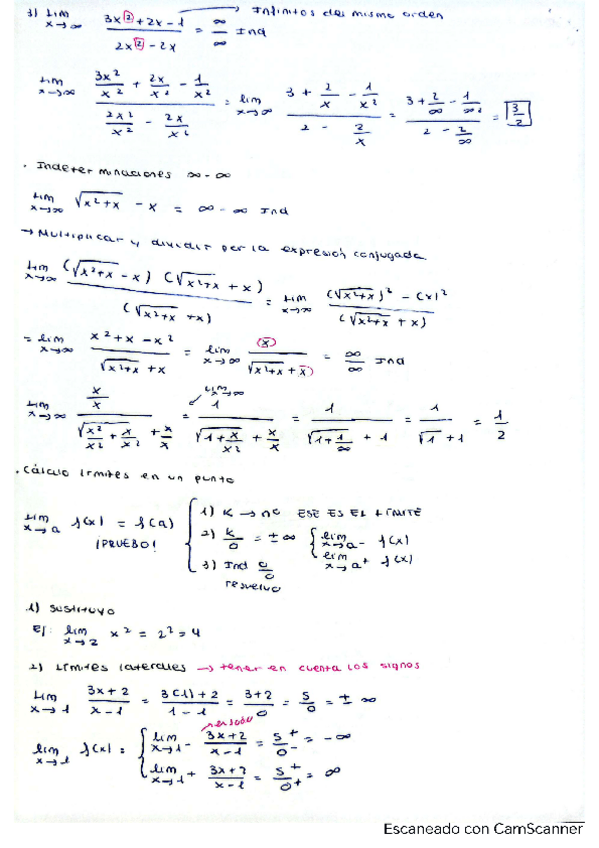 3) Lim x→∞ 3x²+2x-1 / 2x²-2x = ∞/∞ Ind → Infinitos del mismo orden
Lim x→∞ (3x²/x² + 2x/x² - 1/x²) / (2x²/x² - 2x/x²) = lim x→∞ (3 + 2/x - 1/x²) / (2 - 2/x) = (3 + 2/∞ - 1/∞²) / (2 - 2/∞) = 3/2
. Indeterminaciones ∞-∞
Lim x→∞ √x²+x - x = ∞-∞ Ind
→ Multiplicar y dividir por la expresión conjugada
Lim x→∞ (√x²+x - x) (√x²+x + x) / (√x²+x + x) = Lim x→∞ (√x²+x)² - (x)² / (√x²+x + x)
= lim x→∞ x²+x-x² / √x²+x + x = lim x→∞ x / √x²+x + x = ∞/∞ Ind
Lim x→∞
Lim x→∞ (x/x) / (√x²/x² + x/x² + x/x) = 1 / (√1 + x/x² + x/x) = 1 / (√1+1/∞ + 1) = 1 / (√1 + 1) = 1/2
. Cálculo límites en un punto
Lim x→a f(x) = f(a)
¡PRUEBO!
1) K → nº ESE ES EL LÍMITE
2) K/0 = ±∞ { lim x→a⁻ f(x)
lim x→a⁺ f(x)
3) Ind 0/0
resuelvo
1) Sustituyo
Ej: lim x→2 x² = 2² = 4
2) Límites laterales → tener en cuenta los signos
Lim x→1 3x+2 / x-1 = 3(1)+2 / 1-1 = 3+2 / 0 = 5/0 = ± ∞
lim x→1 f(x) = { lim x→1⁻ 3x+2 / x-1 = 5⁺/0⁻ = -∞
lim x→1⁺ 3x+2 / x-1 = 5⁺/0⁺ = ∞
Escaneado con CamScanner